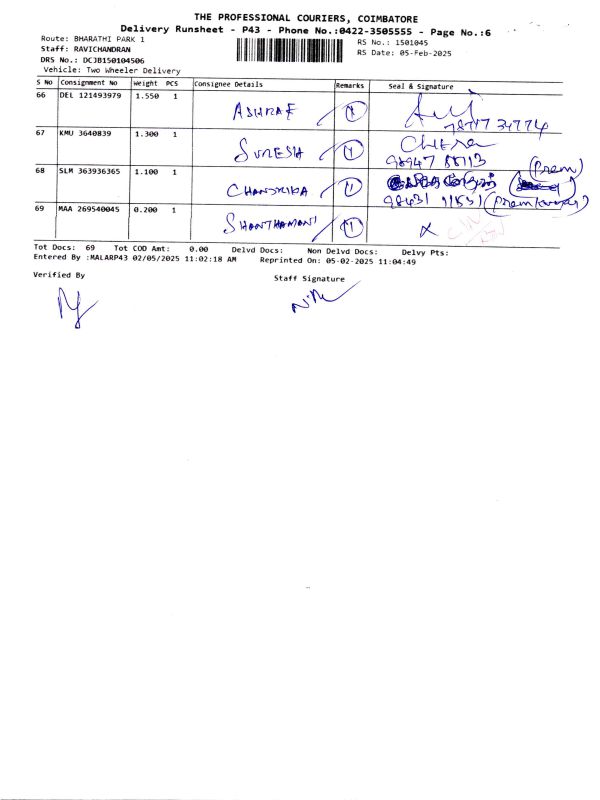 THE PROFESSIONAL COURIERS, COIMBATORE
Delivery Runsheet - P43 - Phone No.:0422-3505555 - Page No.:6
Route: BHARATHI PARK 1
RS No.: 1501045
Staff: RAVICHANDRAN
RS Date: 05-Feb-2025
DRS No.: DCJB150104506
Vehicle: Two Wheeler Delivery
S No Consignment No Weight PCS Consignee Details Remarks Seal & Signature
66 DEL 121493979 1.550 1 ASHRAF 1
67 KMU 3640839 1.300 1 SURESH 1
98947 88113
68 SLM 363936365 1.100 1 CHANDRIKA 1 (Prem)
98431 11551 (Premkumar)
69 MAA 269540045 0.200 1 SHANTHAMANI 1 X
Tot Docs: 69 Tot COD Amt: 0.00 Delvd Docs: Non Delvd Docs: Delvy Pts:
Entered By :MALARP43 02/05/2025 11:02:18 AM Reprinted On: 05-02-2025 11:04:49
Verified By Staff Signature